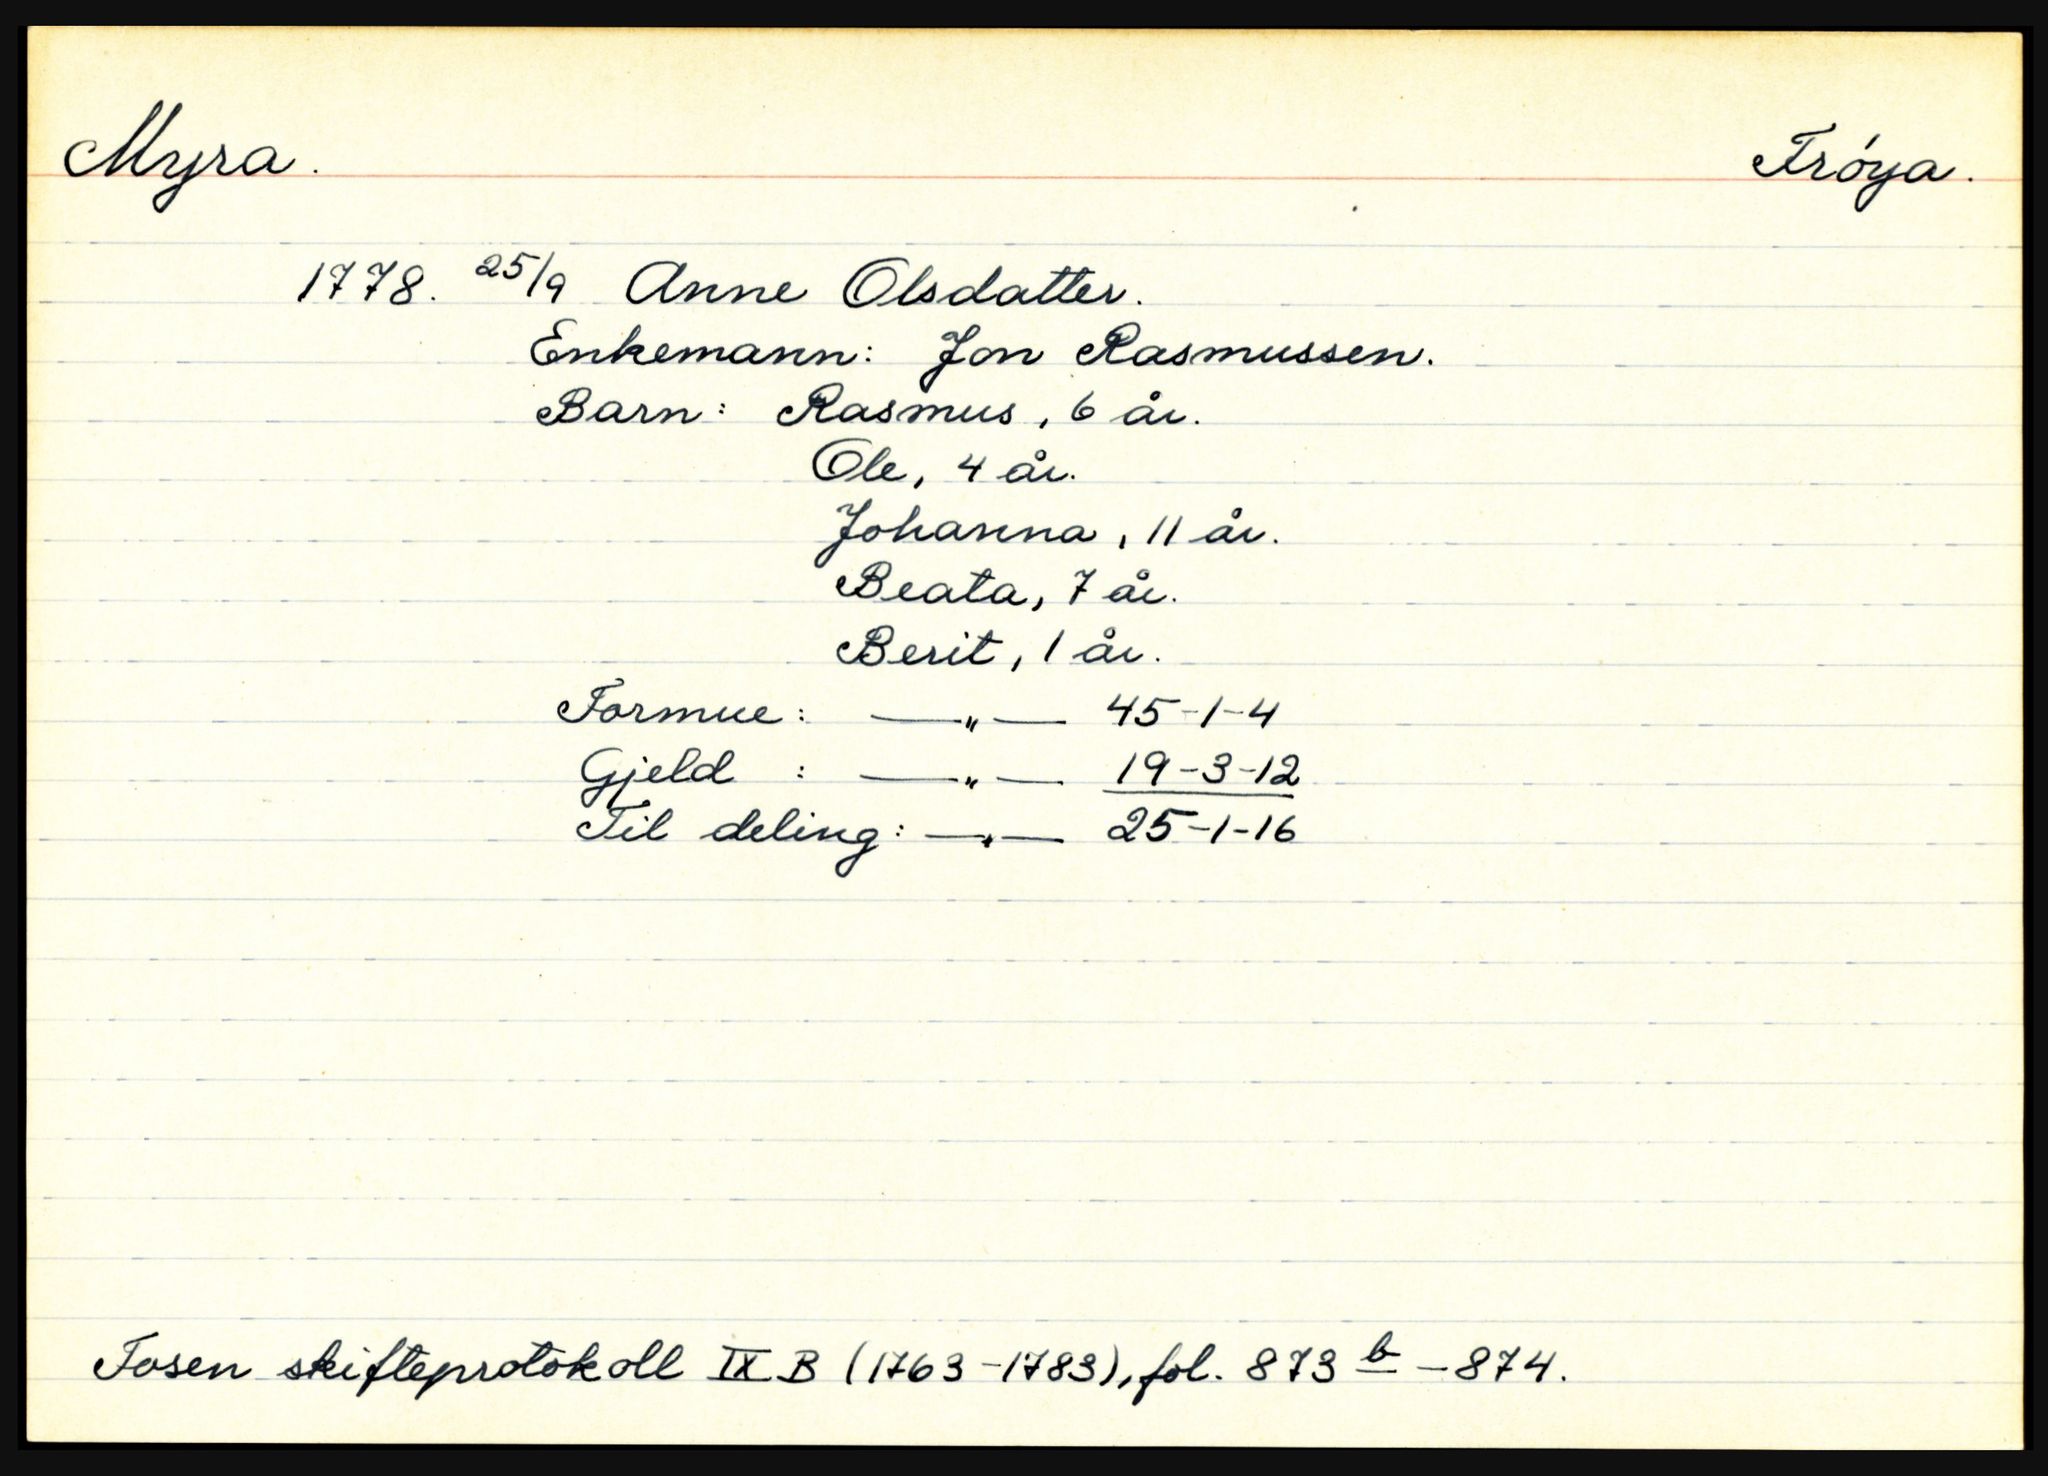 Myra. Fróya.
1778. 25/9 Anne Olsdatter.
Enkemann: Jon Rasmussen.
Barn: Rasmus, 6 år.
Ole, 4 år.
Johanna, 11 år.
Beata, 7 år.
Berit, 1 år.
Formue: —„— 45-1-4
Gjeld : —„— 19-3-12
Til deling: —„— 25-1-16
Fosen skifteprotokoll IX B (1763-1783), fol. 873 b - 874.